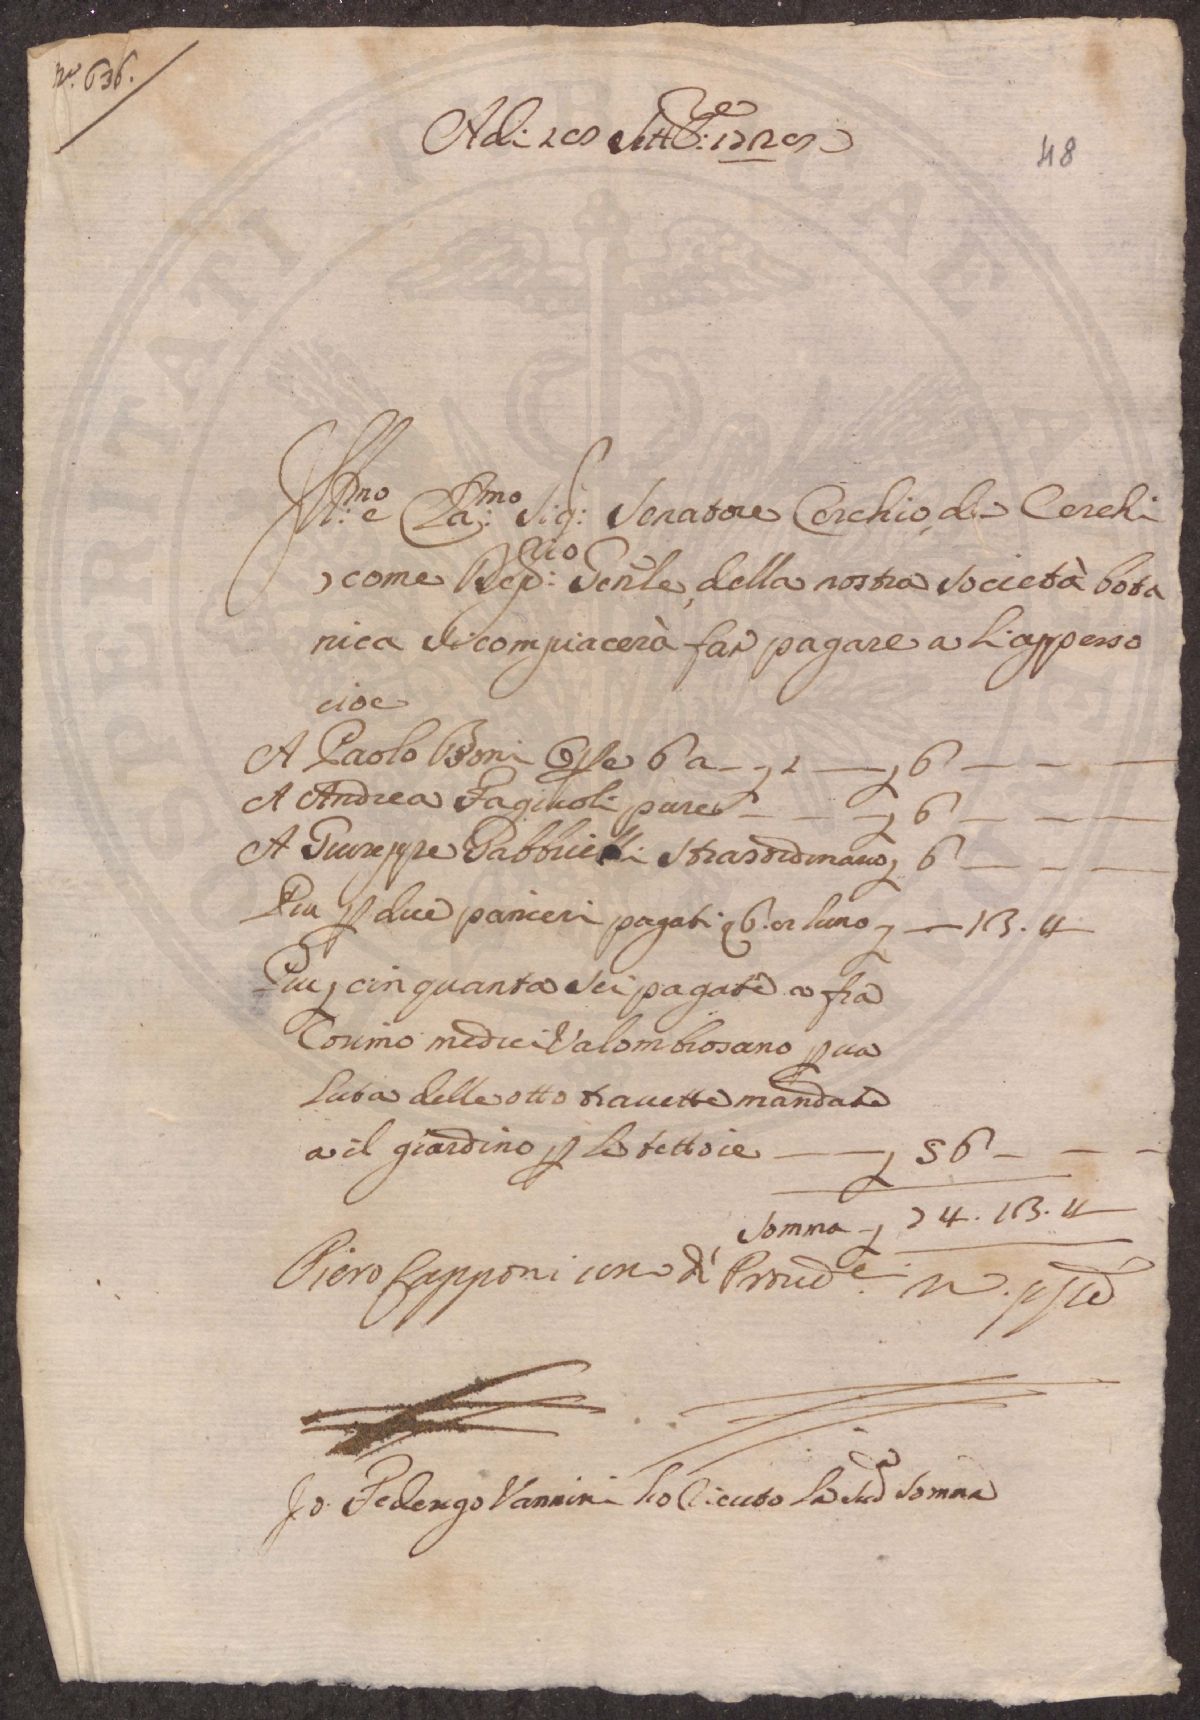 N.° 636.
Adi 20 Sett.bre 1720
48
Ill.mo e Cla.mo Sig.r Senatore Cerchio de Cerchi
come Dep.rio Gen.le della nostra società bota
nica Si compiacerà far pagare a li appresso
cioè
A Paolo Boni Op.e 6 a — £ 2 — £ 6 — — —
A Andrea Fagiuoli pure — — — £ 6 — — —
A Giuseppe Gabbrielli strasordinario £ 6 — — —
Piu p due panieri pagati 6. l'uno £ — 13. 4
Piu £ cinquanta sei pagate a fra
Cosimo medici Valombrosano p va
luta delle otto travette mandate
a il giardino p le tettoie — — £ 56 — — —
Somma £ 74. 13. 4
Piero Capponi uno de Proved.e
Io Federigo Vannini ho riceuto la Sud.a Somma